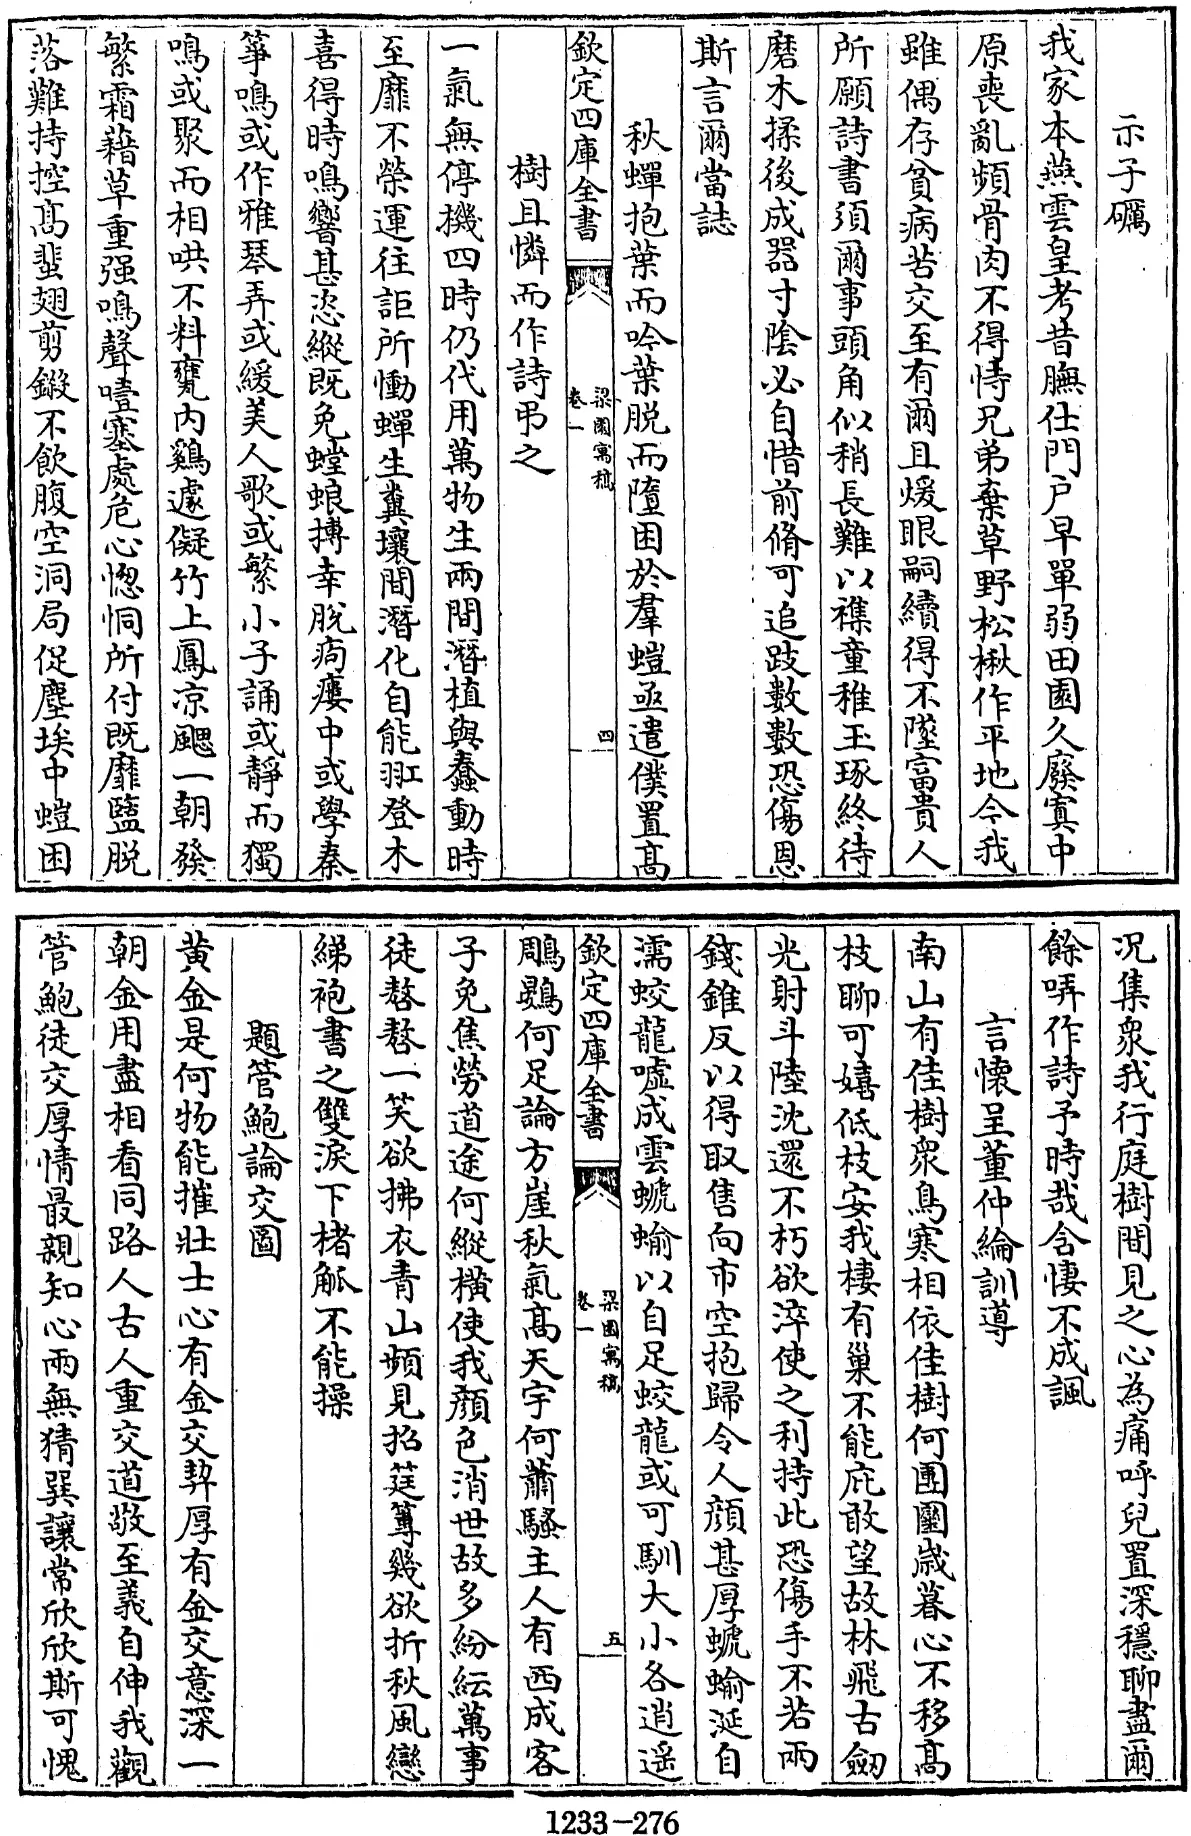 示子礪
我家本燕雲皇考昔膴仕門户早單弱田園久廢寘中
原喪亂頻骨肉不得恃兄弟棄草野松楸作平地今我
雖偶存貧病苦交至有爾且煖眼嗣續得不墜富貴人
所願詩書須爾事頭角似稍長難以襍童稚玉琢終待
磨木揉後成器寸陰必自惜前脩可追跂數數恐傷恩
斯言爾當誌
秋蟬抱葉而吟葉脱而墮困於羣螘亟遣僕置高
欽定四庫全書
梁園寓稿
卷一
四
樹且憐而作詩弔之
一氣無停機四時仍代用萬物生兩間潛植與蠢動時
至靡不榮運往詎所慟蟬生糞壤間潛化自能羾登木
喜得時鳴響甚恣縱既免螳蜋搏幸脱痀瘻中或學秦
箏鳴或作雅琴弄或緩美人歌或繁小子誦或靜而獨
鳴或聚而相哄不料甕内鷄遽儗竹上鳳凉颸一朝發
繁霜藉草重强鳴聲噎塞處危心惚恫所付既靡鹽脱
落難持控髙蜚翅剪鎩不飲腹空洞局促塵埃中螘困
况集衆我行庭樹間見之心為痛呼兒置深穩聊盡爾
餘哢作詩予時哉含悽不成諷
言懷呈董仲綸訓導
南山有佳樹衆鳥寒相依佳樹何團圞歳暮心不移髙
枝聊可嬉低枝安我棲有巢不能庇敢望故林飛古劒
光射斗陸沈還不朽欲淬使之利持此恐傷手不若兩
錢錐反以得取售向市空抱歸令人顔甚厚蜿蝓涎自
濡蛟龍嘘成雲蜿蝓以自足蛟龍或可馴大小各逍遥
欽定四庫全書
梁園寓稿
卷一
五
鵰鶚何足論方崖秋氣髙天宇何蕭騷主人有西成客
子免焦勞道途何縱横使我顔色消世故多紛紜萬事
徒嗸嗸一笑欲拂衣青山頻見招莛篿幾欲折秋風戀
綈袍書之雙淚下楮觚不能操
題管鮑論交圖
黄金是何物能摧壯士心有金交契厚有金交意深一
朝金用盡相看同路人古人重交道敬至義自伸我觀
管鮑徒交厚情最親知心兩無猜巽讓常欣欣斯可愧
1233-276